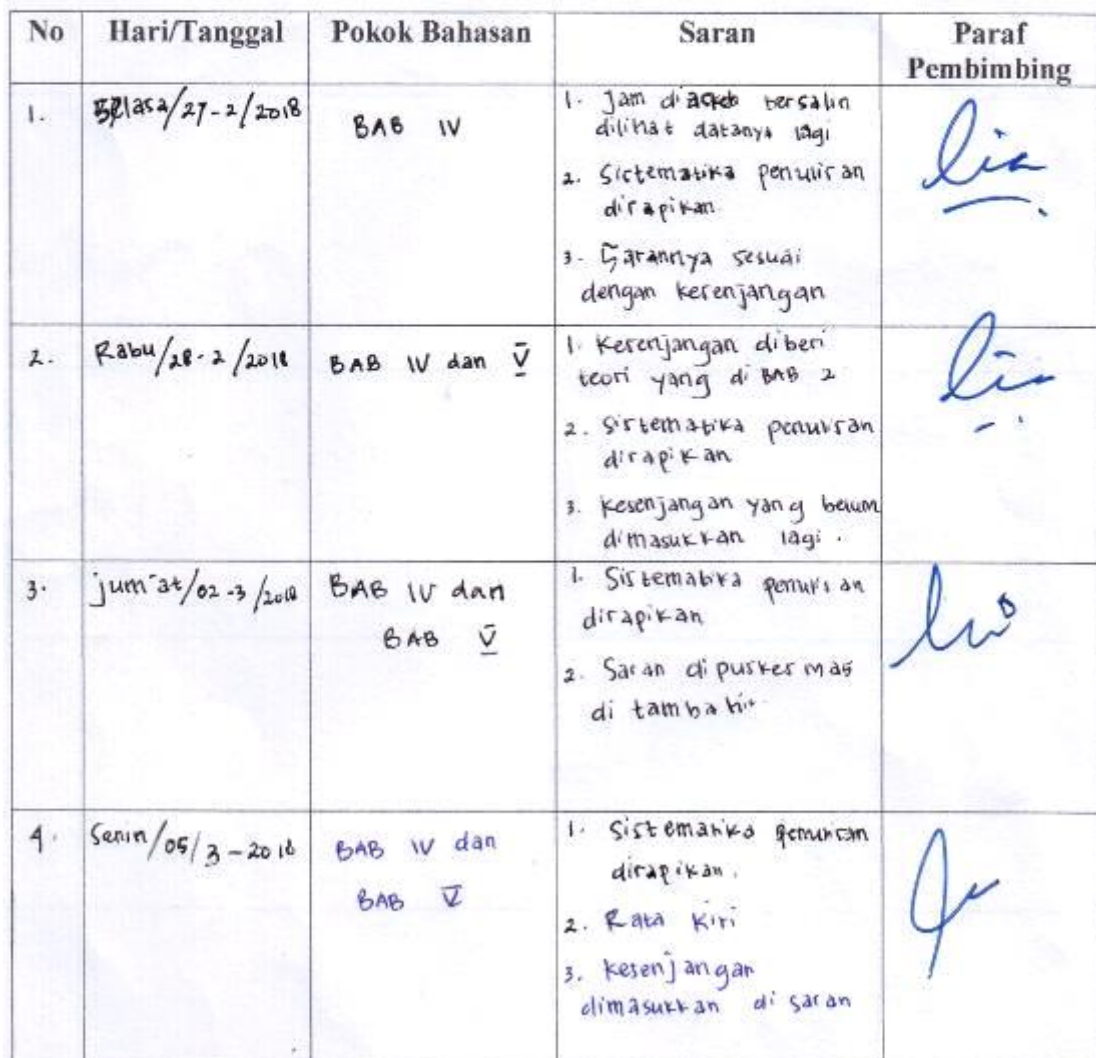 No Hari/Tanggal Pokok Bahasan Saran Paraf Pembimbing
1. Selasa/27-2/2018 BAB IV
1. Jam di askeb bersalin
dilihat datanya lagi
2. Sistematika penulisan
dirapikan
3. Sarannya sesuai
dengan kesenjangan
2. Rabu/28-2/2018 BAB IV dan V
1. Kesenjangan diberi
teori yang di BAB 2
2. Sistematika penulisan
dirapikan
3. Kesenjangan yang belum
dimasukkan lagi.
3. jum'at/02-3/2018 BAB IV dan
BAB V
1. Sistematika penulisan
dirapikan
2. Saran di puskesmas
di tambahi
4. Senin/05/3-2018 BAB IV dan
BAB V
1. Sistematika penulisan
dirapikan.
2. Rata Kiri
3. kesenjangan
dimasukkan di saran